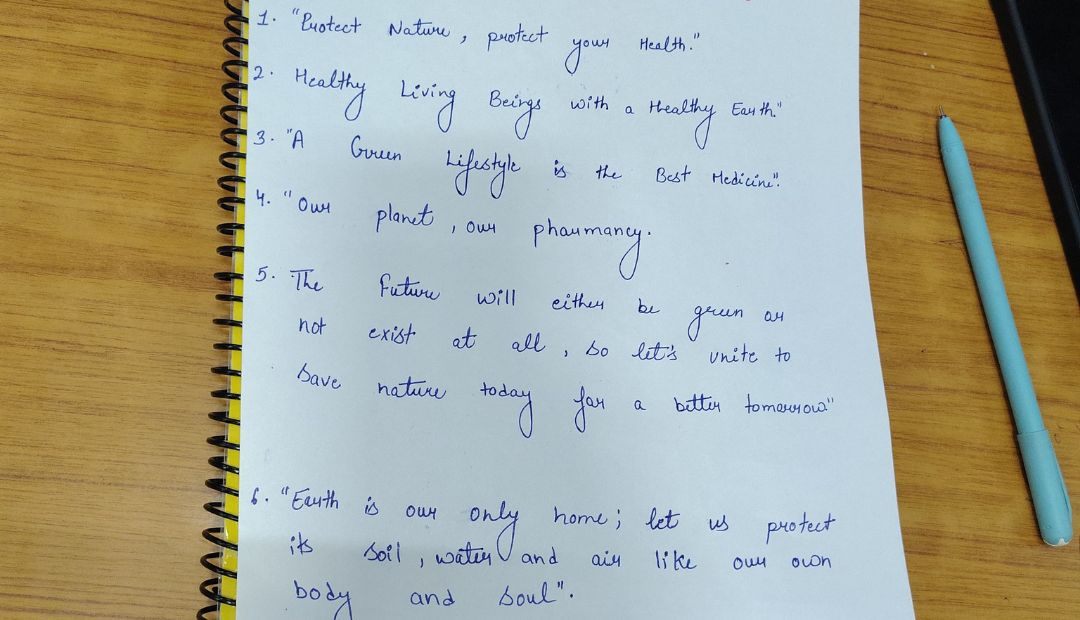 1. "Protect Nature, protect your Health."
2. Healthy Living Beings with a Healthy Earth."
3. "A Green Lifestyle is the Best Medicine".
4. "Our planet, our pharmancy.
5. The future will either be green or
not exist at all, so let's unite to
save nature today for a better tomorrow"
6. "Earth is our only home; let us protect
its soil, water and air like our own
body and soul".